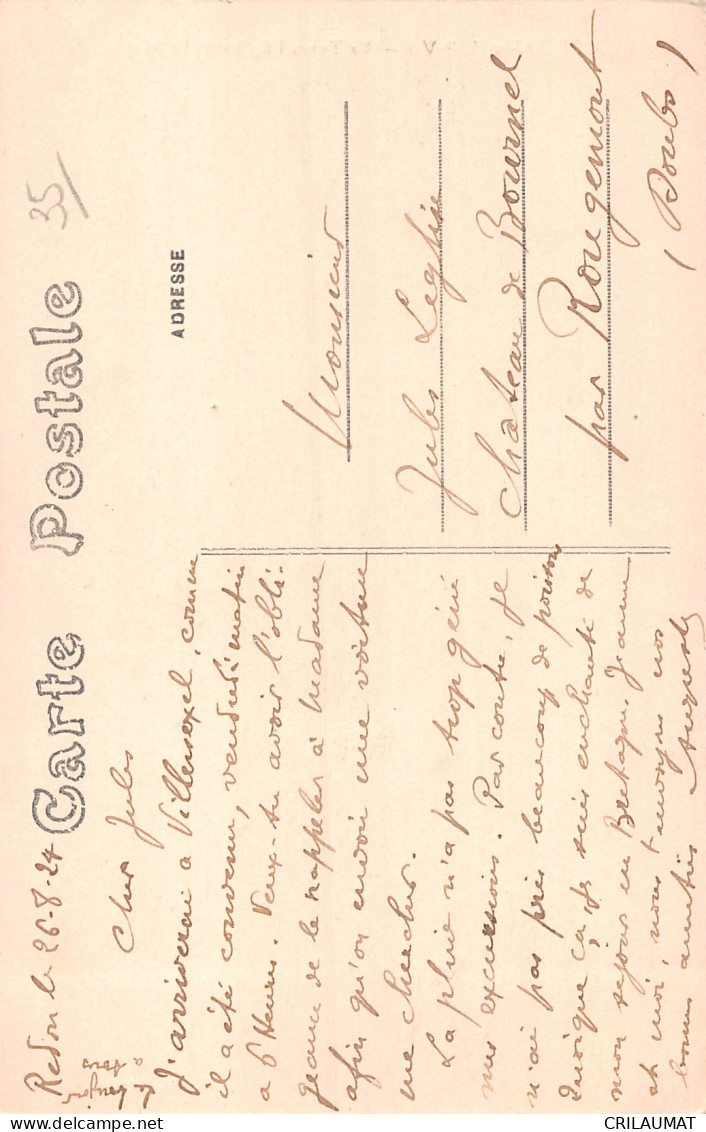 Carte Postale
35
ADRESSE
Redon le 26-8-24
Cher Jules
J'arriverai à Villersexel, comme
il a été convenu, vendredi matin
à 6 heures. Veux-tu avoir l'obli-
geance de le rappeler à Madame
afin qu'on envoie une voiture
me chercher.
La pluie n'a pas trop gêné
mes excursions. Par contre, je
n'ai pas pris beaucoup de poissons
Quoique ça, je suis enchanté de
mon séjour en Bretagne. Jeanne
et moi, nous t'envoyons nos
bonnes amitiés Auguste
à tous
Monsieur
Jules Leglise
Château de Bournel
par Rougemont
(Doubs)
CRILAUMAT